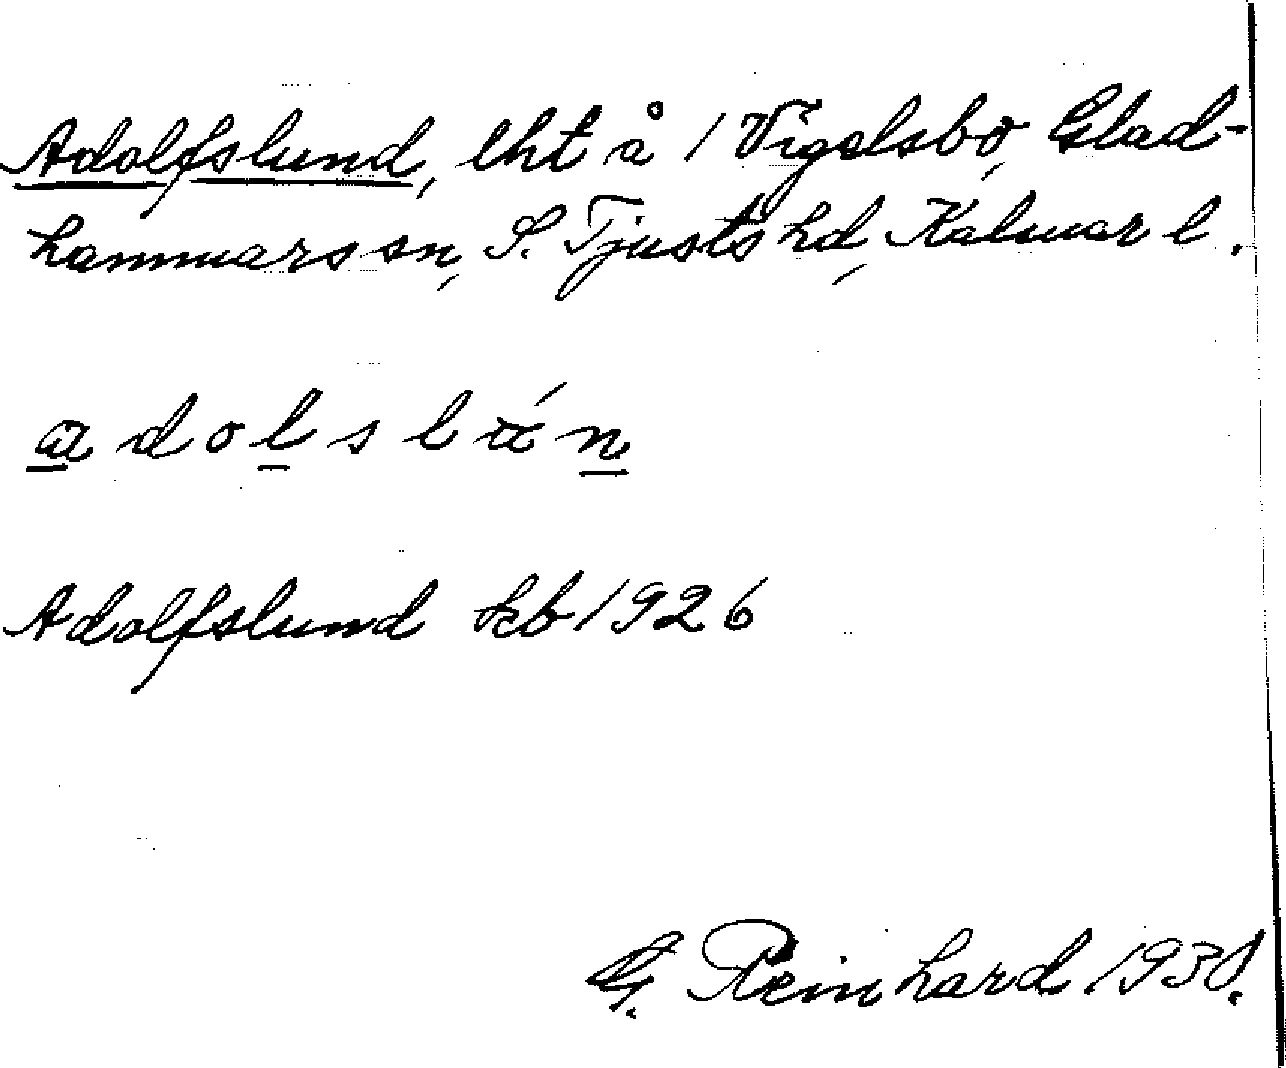 Adolfslund, lht å 1 Vigelsbo, Glad-
hammars sn, S. Tjusts hd, Kalmar l.
a d o l s l ú n
Adolfslund kb 1926
G. Reinhard 1931.